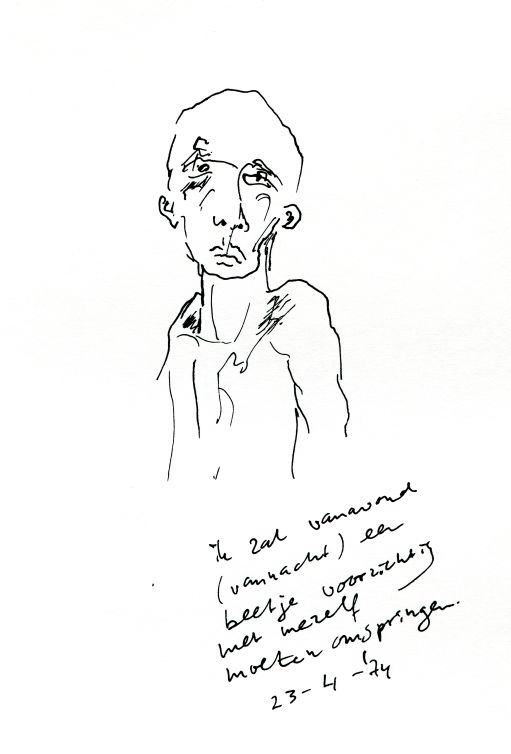 ik zal vanavond
(vannacht) een
beetje voorzichtig
met mezelf
moeten omspringen.
23-4-'74